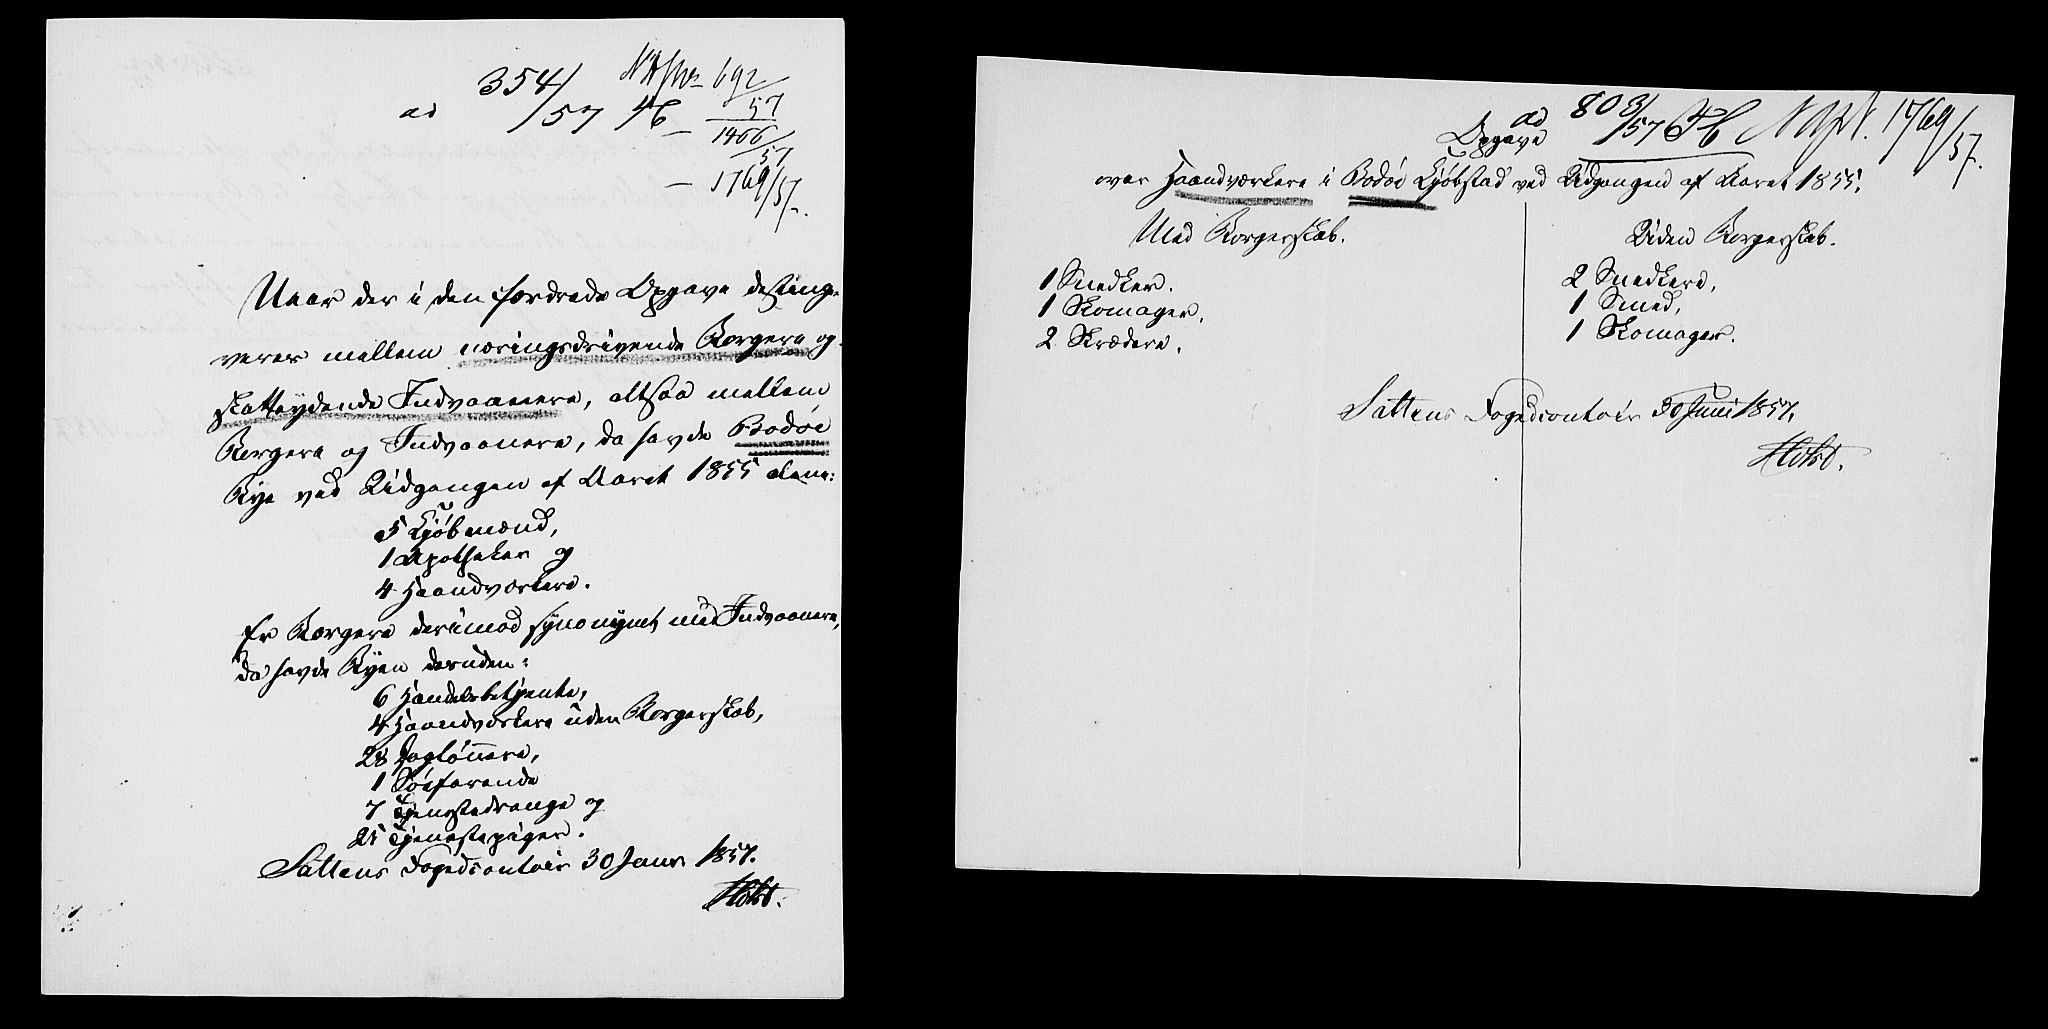 ad 354/57 Fb
692/57
1466/57
1769/57.
Naar der i den fordrede Opgave desting-
verer mellem næringsdrivende Borgere og
skatteydende Indvaanere, altsaa mellem
Borgere og Indvaanere, da havde Bodøe
Bye ved Udgangen af Aaret 1855 alene:
5 Kjøbmænd,
1 Apotheker og
4 Haandværkere.
Er Borgere derimod synonymt med Indvaanere,
da havde Byen deruden:
6 Handelsbetjente,
4 Haandværkere uden Borgerskab,
28 Daglønnere,
1 Søefarende
7 Tjenestedrenge og
25 Tjenestepiger.
Saltens Fogedcontoir 30 Janr 1857.
Holst.
ad 803/57 Fb 1769/57.
Opgave
over Haandværkere i Bodøe Kjøbstad ved Udgangen af Aaret 1855.
Med Borgerskab.
1 Snedker.
1 Skomager.
2 Skrædere.
Uden Borgerskab.
2 Snedkere,
1 Smed,
1 Skomager.
Saltens Fogedcontoir 30 Juni 1857.
Holst.